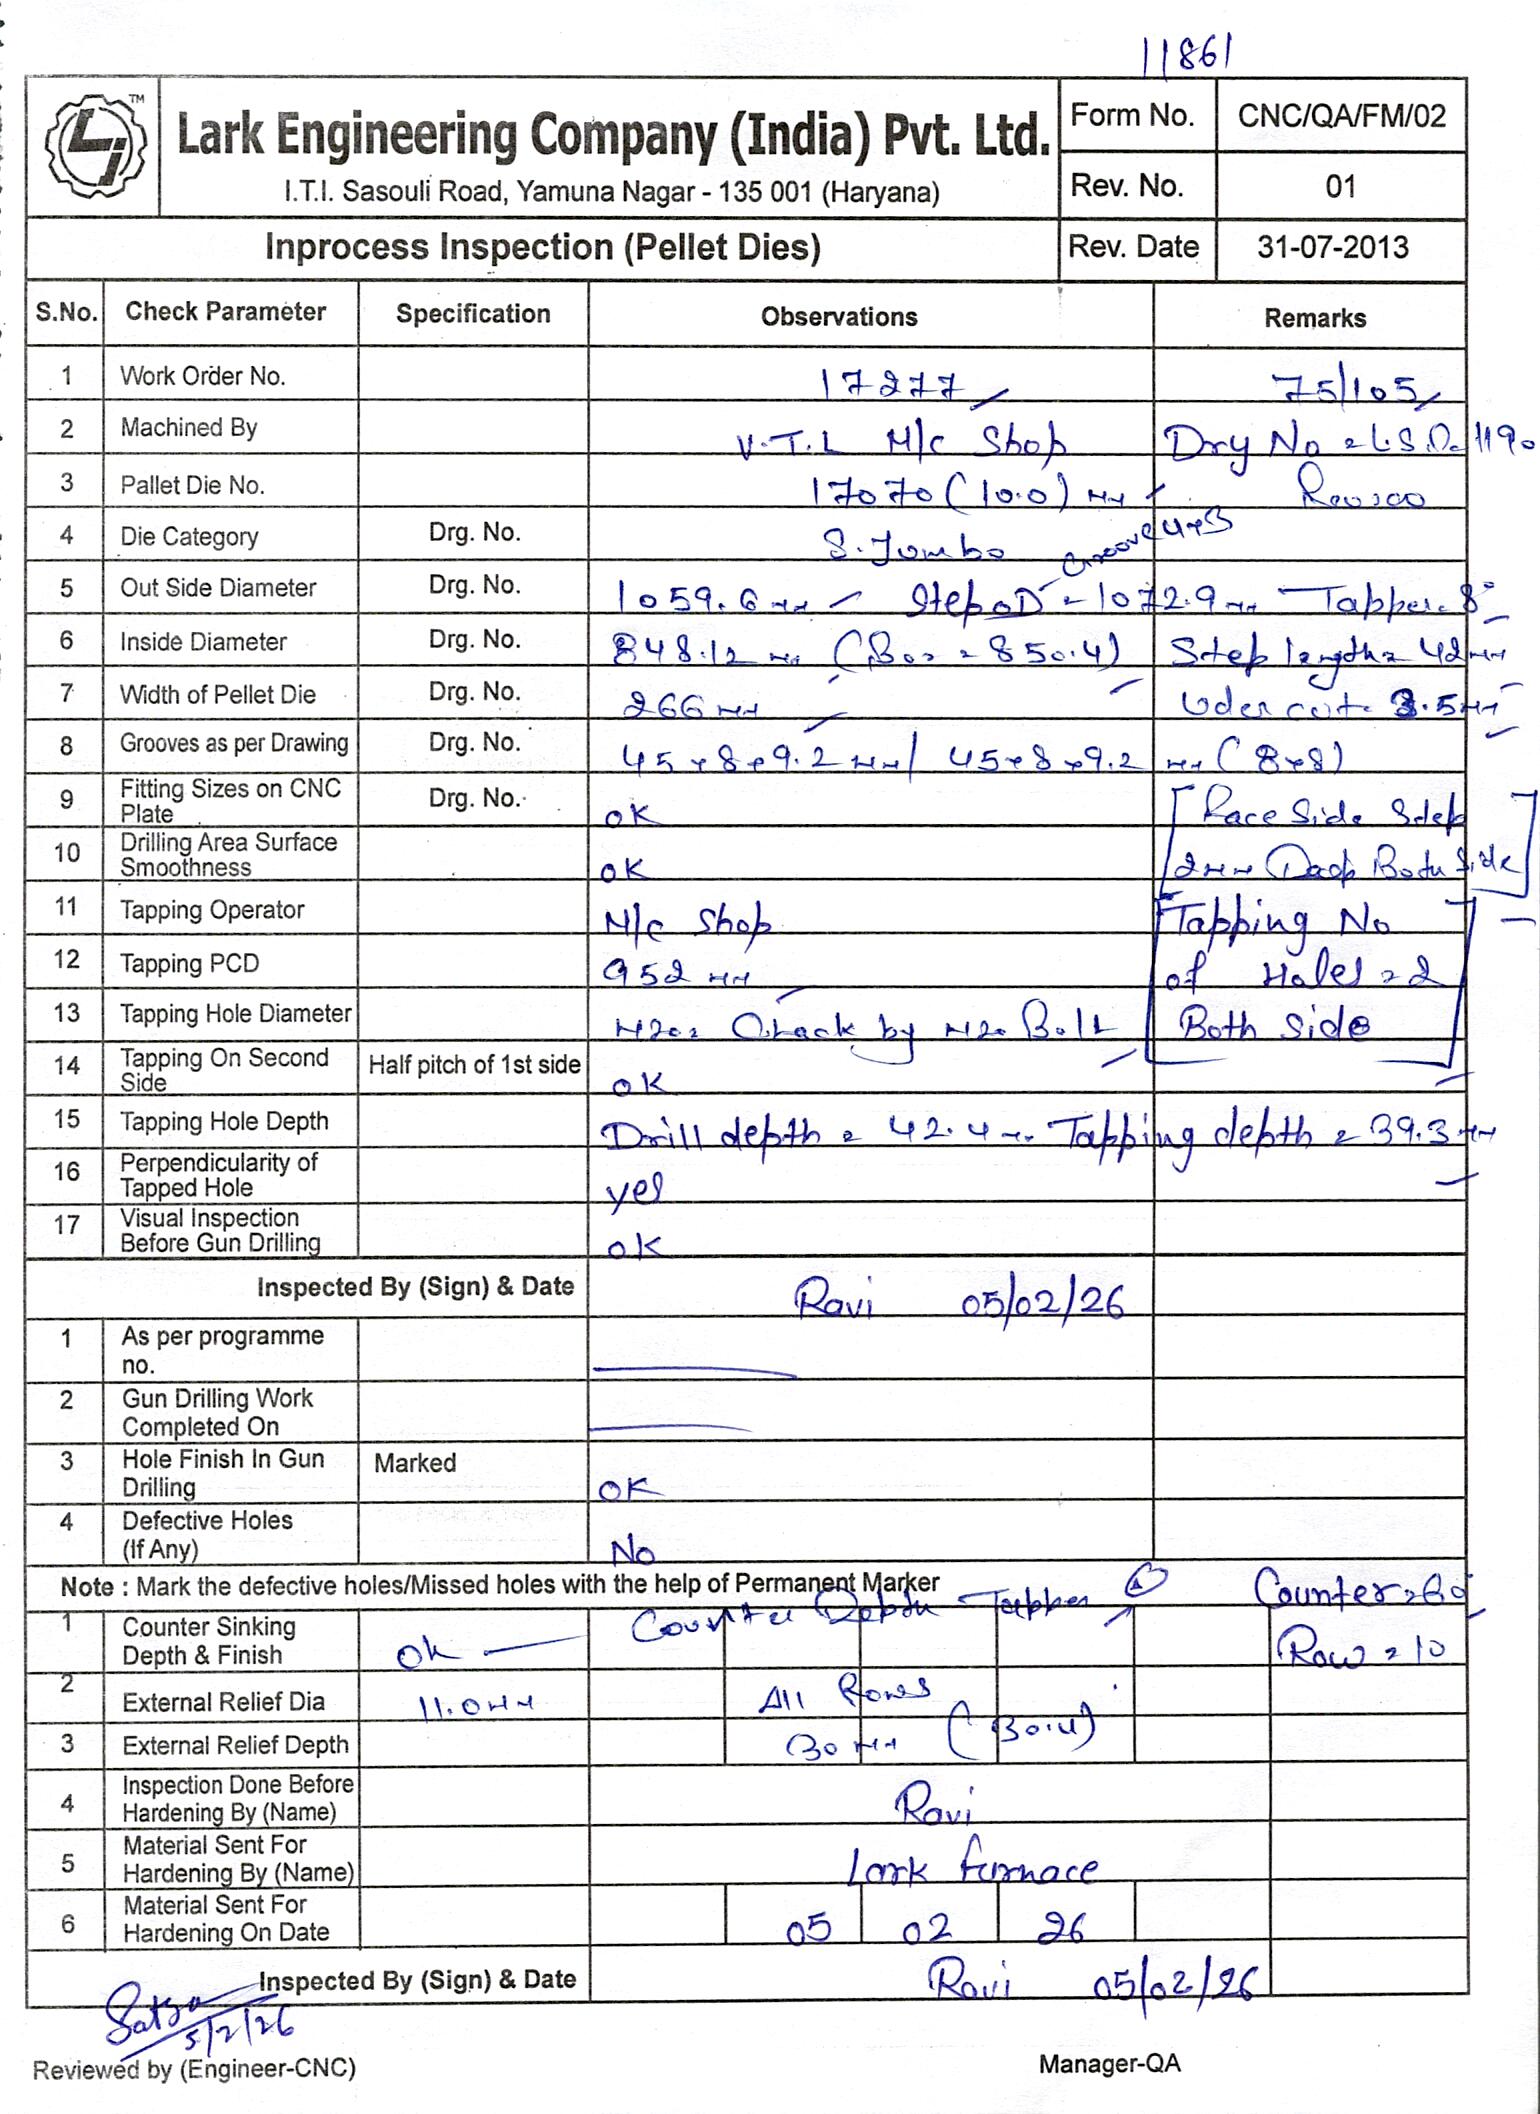 11861
TM
Lark Engineering Company (India) Pvt. Ltd.
I.T.I. Sasouli Road, Yamuna Nagar - 135 001 (Haryana)
Form No. CNC/QA/FM/02
Rev. No. 01
Inprocess Inspection (Pellet Dies) Rev. Date 31-07-2013
S.No. Check Parameter Specification Observations Remarks
1 Work Order No. 17277 75/105
2 Machined By V.T.L M/c Shop Drg No = L.S.D. 1190
3 Pallet Die No. 17070 (10.0) mm
4 Die Category Drg. No. S. Jumbo Groove 4x3
5 Out Side Diameter Drg. No. 1059.6 mm Step OD = 1072.9 mm Tapper = 8°
6 Inside Diameter Drg. No. 848.12 mm (Bore = 850.4) Step length = 42 mm
7 Width of Pellet Die Drg. No. 266 mm Uder cut = 3.5 mm
8 Grooves as per Drawing Drg. No. 45x8x9.2 mm / 45x8x9.2 mm (8x8)
9 Fitting Sizes on CNC Plate Drg. No. OK [Race Side Step
10 Drilling Area Surface Smoothness OK 2mm Deep Both Side]
11 Tapping Operator M/c Shop [Tapping No
12 Tapping PCD 952 mm of Holes = 2
13 Tapping Hole Diameter M20 = Check by M20 Bolt Both Side]
14 Tapping On Second Side Half pitch of 1st side OK
15 Tapping Hole Depth Drill depth = 42.4 mm Tapping depth = 39.3 mm
16 Perpendicularity of Tapped Hole yes
17 Visual Inspection Before Gun Drilling OK
Inspected By (Sign) & Date Ravi 05/02/26
1 As per programme no.
2 Gun Drilling Work Completed On
3 Hole Finish In Gun Drilling Marked OK
4 Defective Holes (If Any) No
Note : Mark the defective holes/Missed holes with the help of Permanent Marker
Counter Depth Tapper Counter = 60°
1 Counter Sinking Depth & Finish Ok Row = 10
2 External Relief Dia 11.0 mm All Rows
3 External Relief Depth 30 mm (30.4)
4 Inspection Done Before Hardening By (Name) Ravi
5 Material Sent For Hardening By (Name) Lark furnace
6 Material Sent For Hardening On Date 05 02 26
Inspected By (Sign) & Date Ravi 05/02/26
5/2/26
Reviewed by (Engineer-CNC) Manager-QA